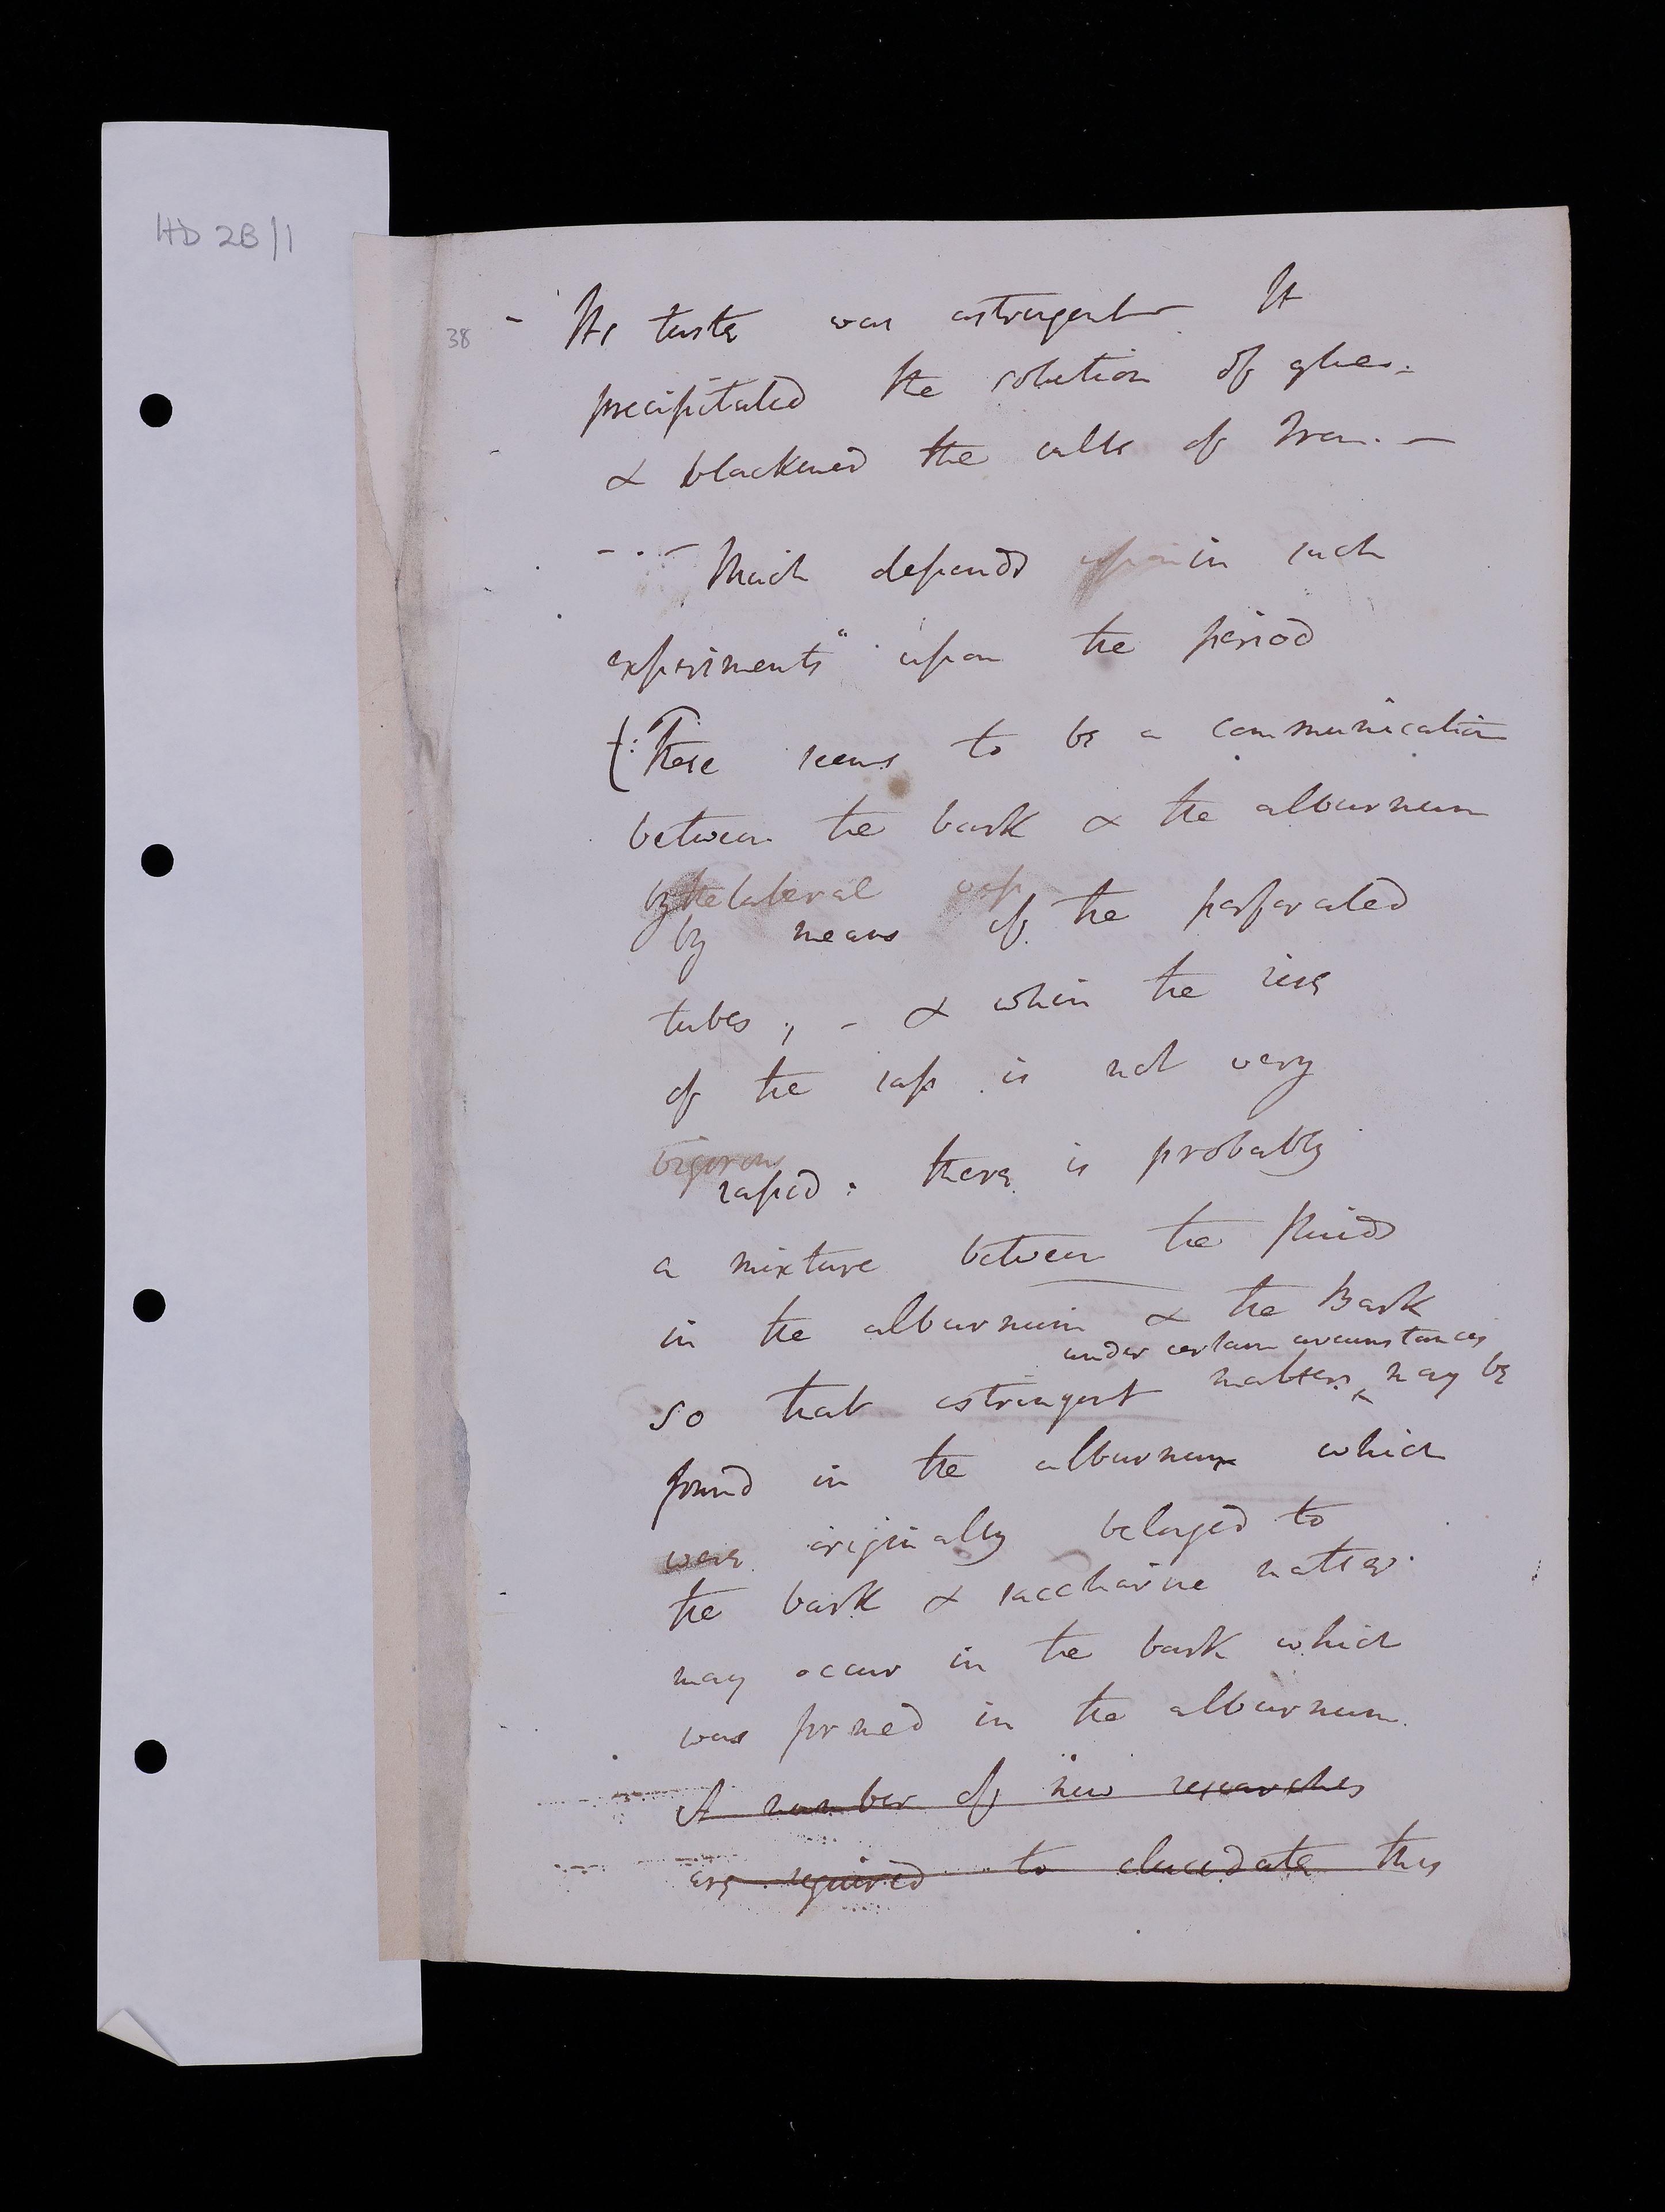 HD 2B/1
38
- Its taste was astringent - It
precipitated the solution of glue.-
& blackened the salts of Iron. -
Much depends upon in such
experiments upon the period
(There seems to be a communication
between the bark & the alburnum
by the lateral
by means of the perforated
tubes; - & when the rise
of the sap is not very
vigorous
rapid: there is probably
a mixture between the fluids
in the alburnum & the Bark
under certain circumstances
so that astringent matter ^ may be
found in the alburnum which
were originally belonged to
the bark & saccharine matter.
may occur in the bark which
was formed in the alburnum.
A number of new researches
are required to elucidate this